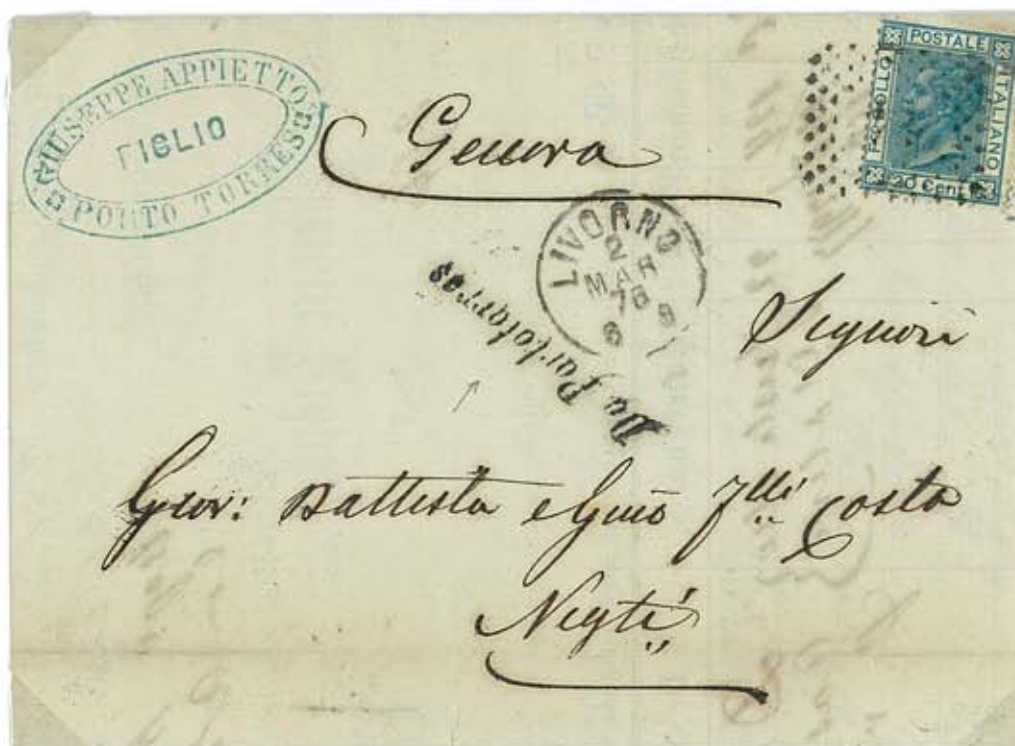 GIUSEPPE APPIETTO
FIGLIO
PORTO TORRES
POSTALE
ITALIANO
BOLLO
20 Cent
Genova
LIVORNO
2
MAR
76
6 S
Da Portotorres
Signori
Giov: Battista e Giuo flli Costa
Negti